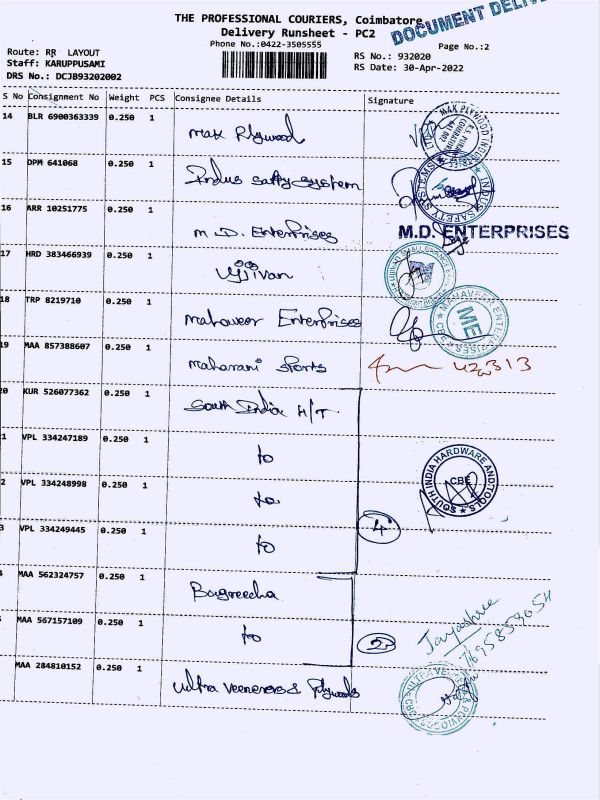 THE PROFESSIONAL COURIERS, Coimbatore
Delivery Runsheet - PC2
DOCUMENT
Phone No.:0422-3505555
Page No.:2
Route: RR LAYOUT
Staff: KARUPPUSAMI
DRS No.: DCJB93202002
RS No.: 932020
RS Date: 30-Apr-2022
S No Consignment No Weight PCS Consignee Details Signature
14 BLR 6900363339 0.250 1 Mak Plywood
MAK PLYWOOD
15 DPM 641068 0.250 1 Indus safty system
INDUS SAFETY SYSTEMS
16 ARR 10251775 0.250 1 M.D. Enterprises
M.D. ENTERPRISES
17 HRD 383466939 0.250 1 Ujjivan
18 TRP 8219710 0.250 1 Mahaveer Enterprises
MAHAVEER ENTERPRISES CBE
ME
19 MAA 857388607 0.250 1 Maharani Sports
20 KUR 526077362 0.250 1 South India H/T
1 VPL 334247189 0.250 1 to
2 VPL 334248998 0.250 1 to
SOUTH INDIA HARDWARE AND TOOLS
CBE
3 VPL 334249445 0.250 1 to
4
4 MAA 562324757 0.250 1 Bagreecha
MAA 567157109 0.250 1 to
2
Jayashree
MAA 284810152 0.250 1 Ultra Veeneeres & Plywoods